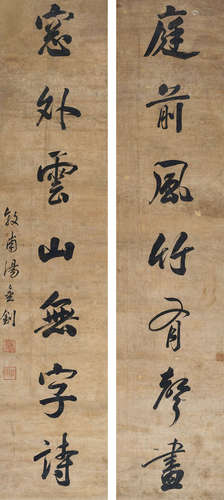 庭前風竹有聲畫
窓外雲山無字詩
敦甫湯金釗